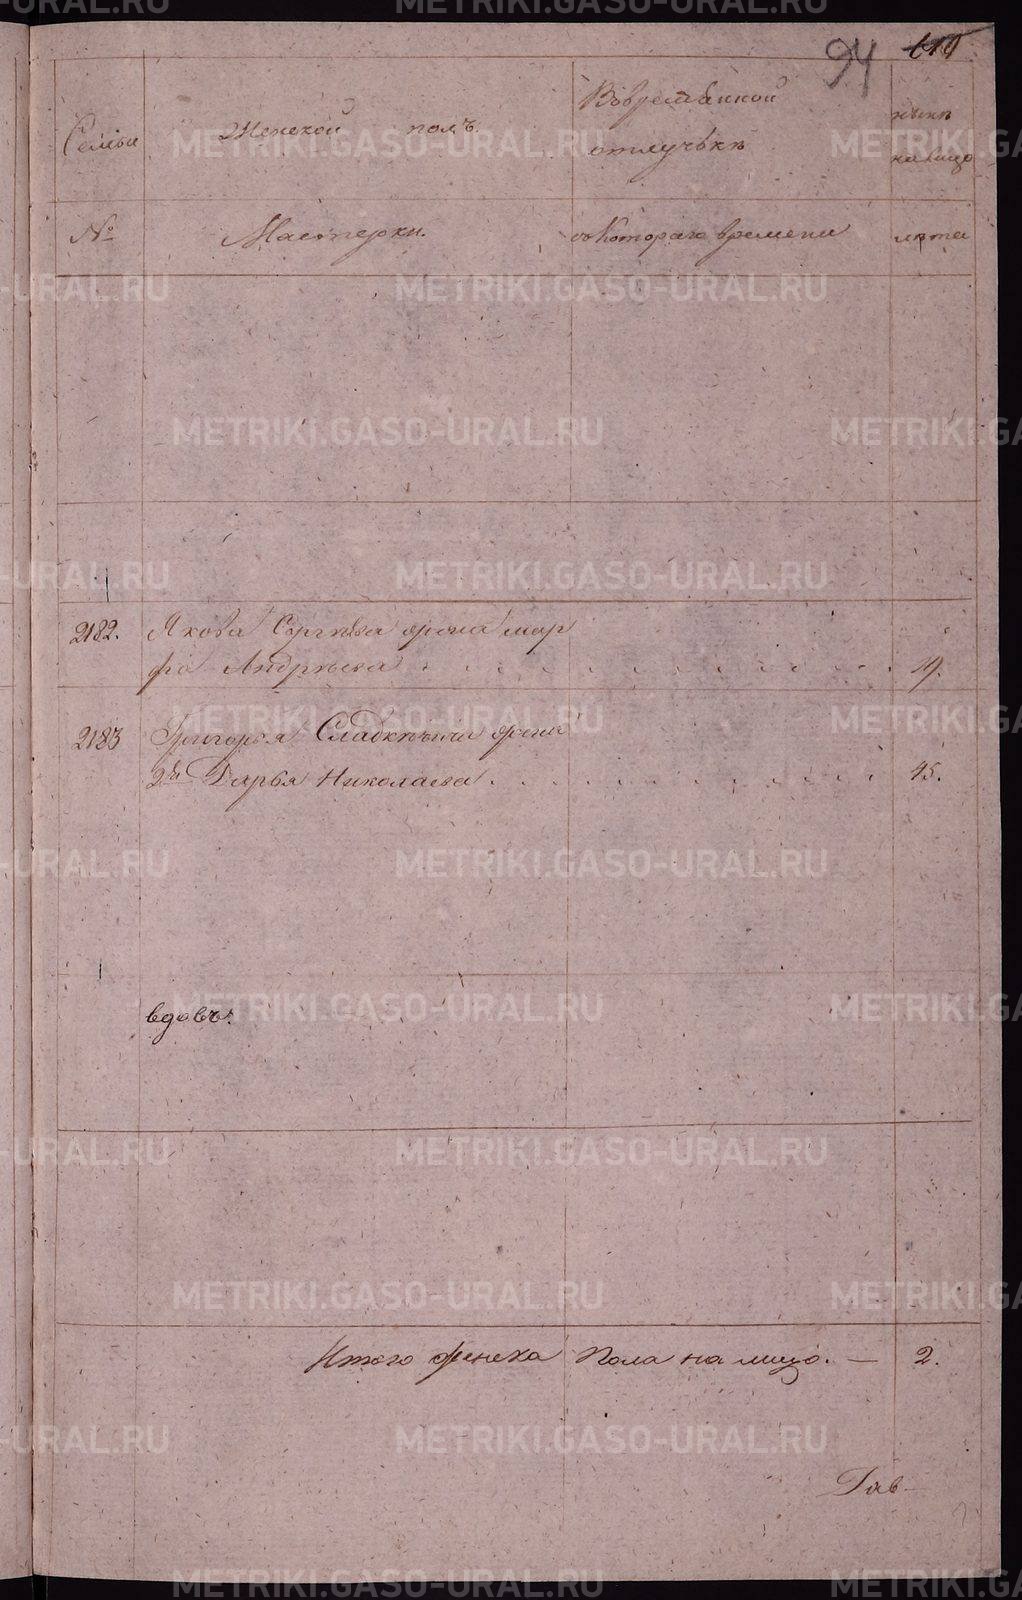 94 110
Семьи Женской полъ. Вовременной отлучькѣ нынѣ налицо
№ Мастерки. скотораго времени лѣта
2182. Якова Сергѣева жена мар
фа Андрѣева 19.
2183 Григорья Сладкѣхъ жена
2я Дарья Николаева 45.
вдовъ.
Итого женска Пола на лицо. — 2.
Гав-
METRIKI.GASO-URAL.RU